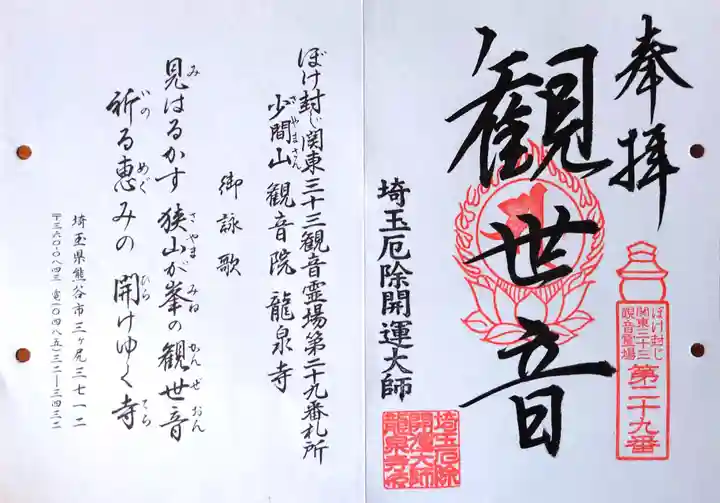 奉拝
ぼけ封じ
関東三十三
観音霊場
第二十九番
観世音
埼玉厄除開運大師
埼玉厄除
開運大師
龍泉寺
ぼけ封じ関東三十三観音霊場第二十九番札所
少間山 観音院 龍泉寺
さやまさん
御詠歌
見はるかす 狭山が峯の観世音
み さやま みね かんぜおん
祈る恵みの 開けゆく寺
いの めぐ ひら てら
埼玉県熊谷市三ヶ尻三七一二
〒三六〇-〇八四三 電(〇四八五)三二-三四三二